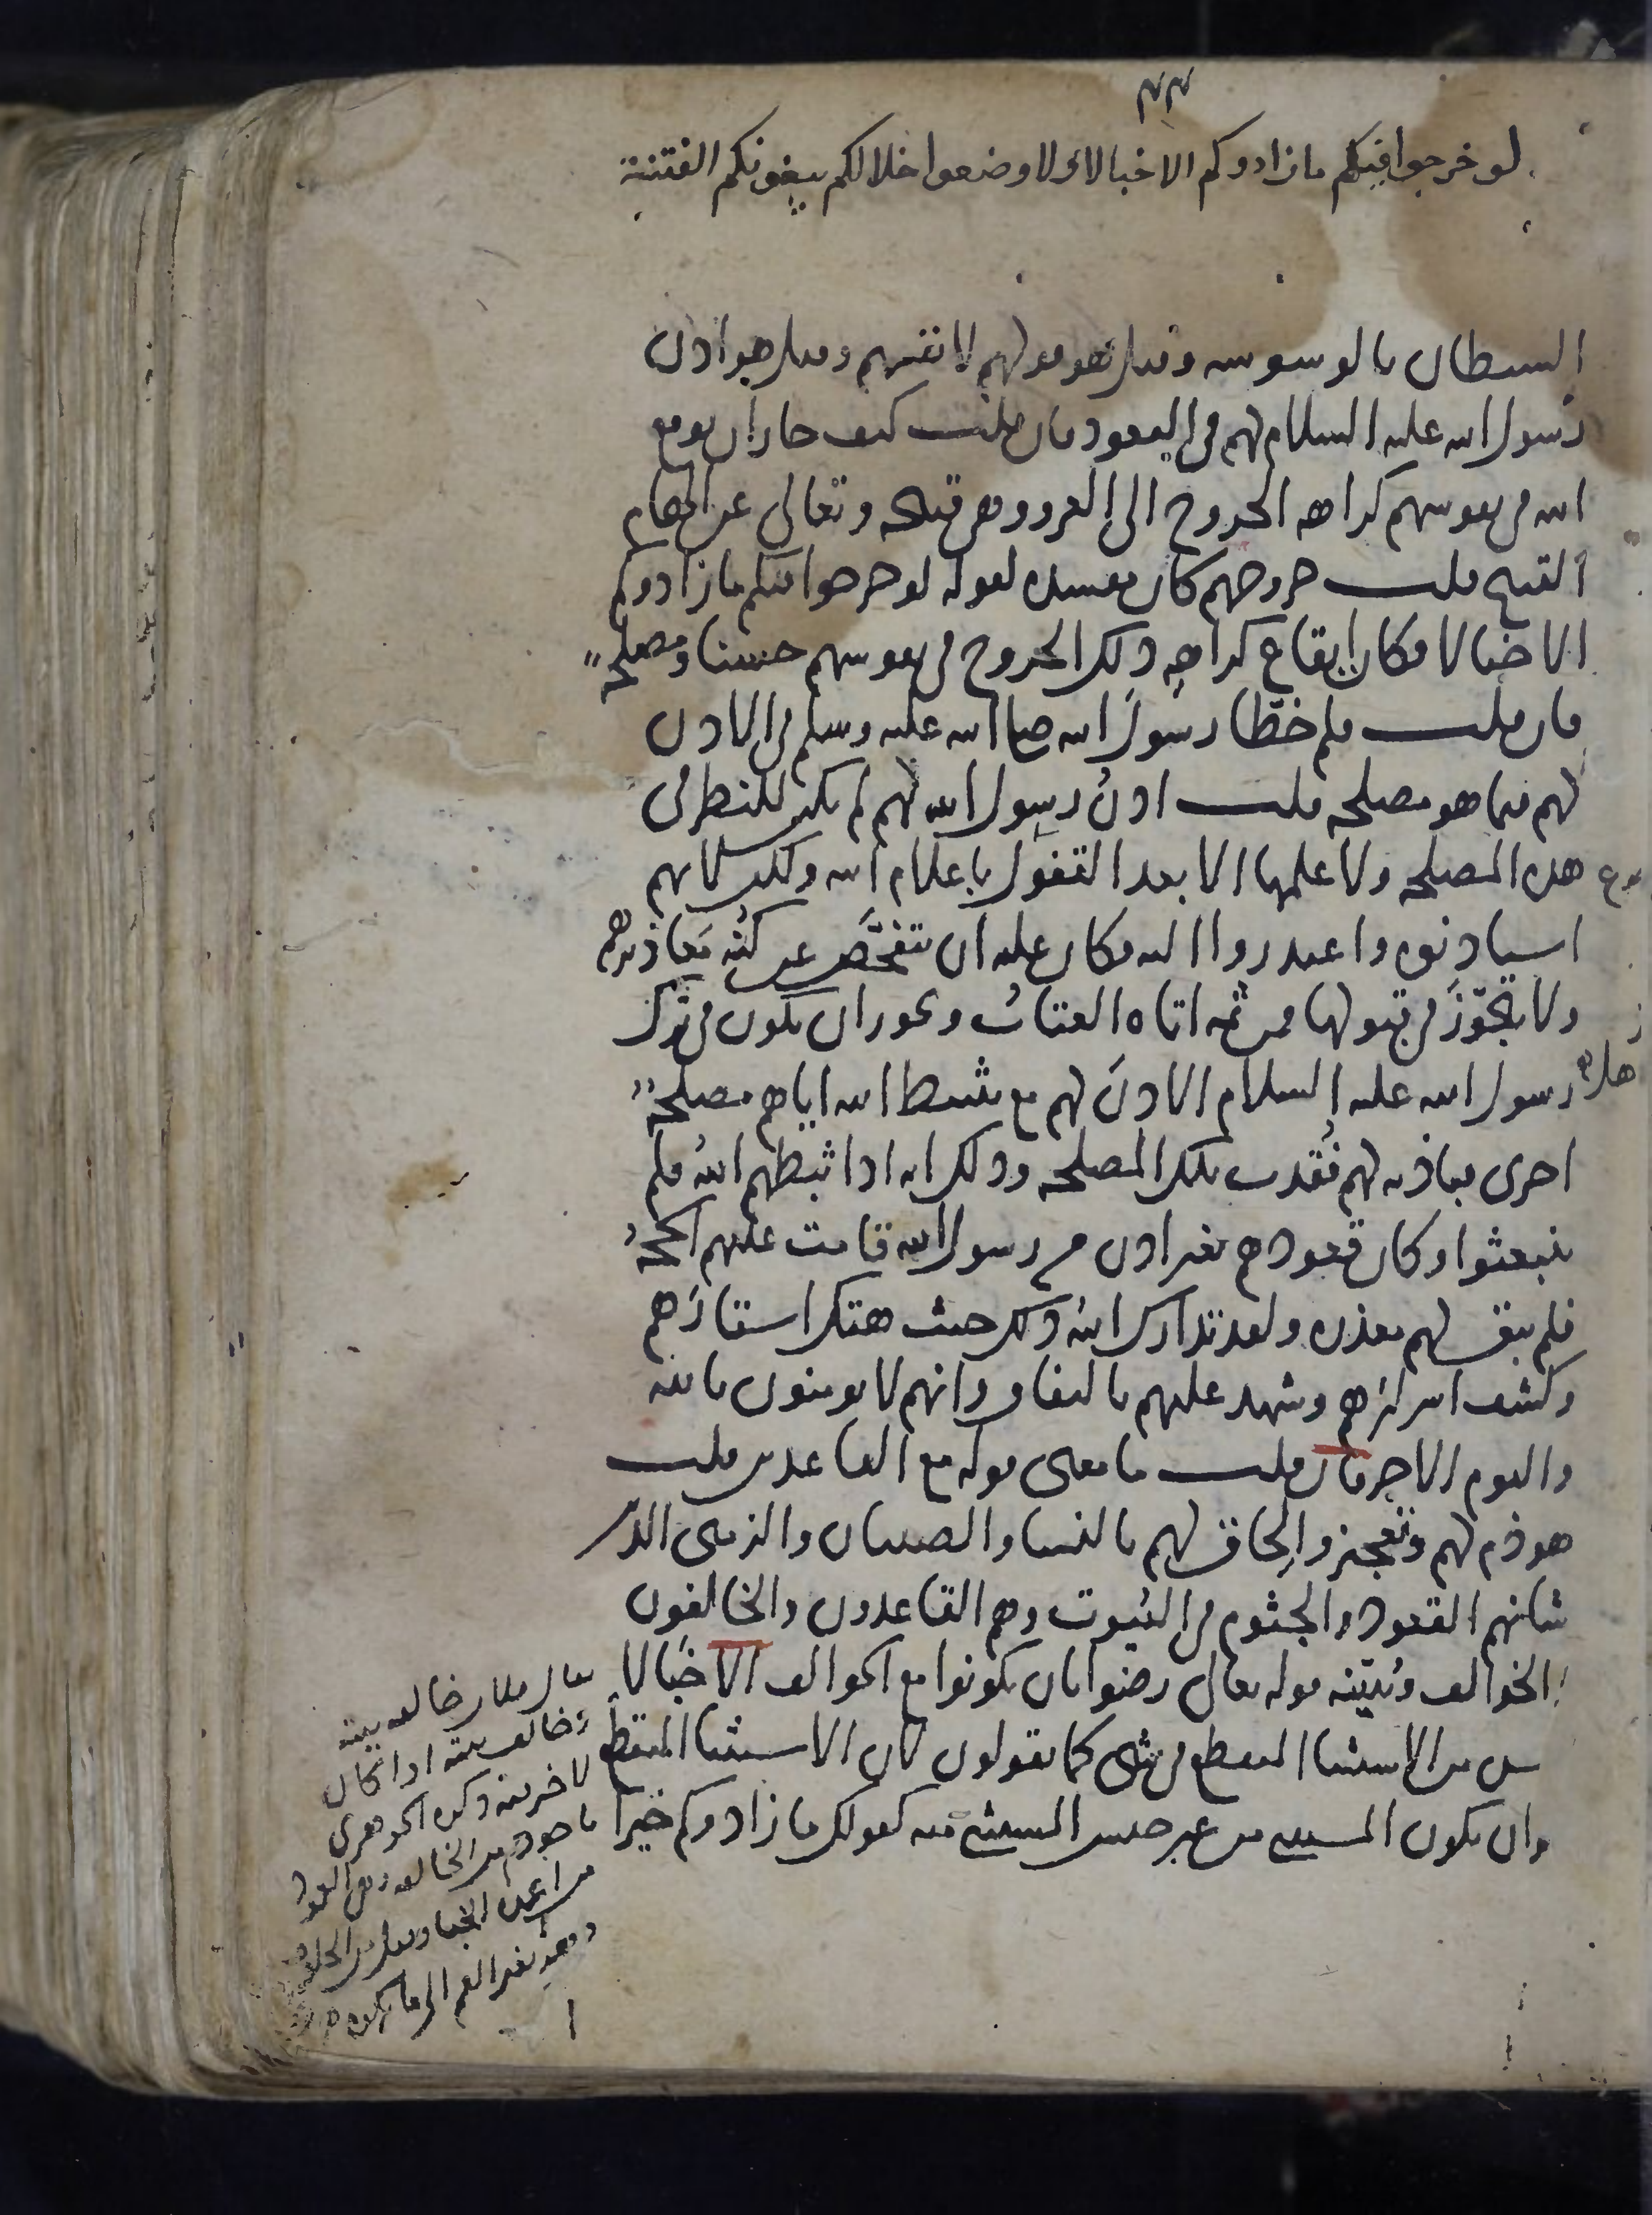 لو خرجوا فيكم ما زادوكم الا خبالا ولا وضعوا خلالكم يبغونكم الفتنة
الشيطان بالوسوسه وقيل هو قولهم لانفسهم وقيل هو اذن
رسول الله عليه السلام لهم في القعود فان قلت كيف جاز ان يوقع
الله في نفوسهم كراهه الخروج الى الغزو وهي قبيحه وتعالى عن الهام
القبيح قلت خروجهم كان مفسده لقوله لو خرجوا فيكم ما زادوكم
الا خبالا فكان ايقاع كراهه ذلك الخروج في نفوسهم حسنا ومصلحه
فان قلت فلم خطا رسول الله صلى الله عليه وسلم في الاذن
لهم فيما هو مصلحه قلت اذن رسول الله لهم لم يكن للنظر في
هذه المصلحه ولا علمها الا بعد القفول باعلام الله ولكن لانهم
استاذنوه واعتذروا اليه فكان عليه ان يتفحص عن كنه معاذيرهم
ولا يتجوز في قبولها فمن ثمه اتاه العتاب ويجوز ان يكون في ترك
رسول الله عليه السلام الاذن لهم مع تثبيط الله اياهم مصلحه
اخرى فباذنه لهم فقدت تلك المصلحه وذلك انه اذا ثبطهم الله فلم
ينبعثوا وكان قعودهم بغير اذن من رسول الله قامت عليهم الحجه
فلم يبق لهم معذره ولقد تدارك الله ذلك حيث هتك استارهم
وكشف اسرارهم وشهد عليهم بالنفاق وانهم لا يومنون بالله
واليوم الاخر فان قلت ما معنى قوله مع القاعدين قلت
هو ذم لهم وتعجيز والحاق لهم بالنسا والصبيان والزمنى الذين
شانهم القعود والجثوم في البيوت وهم القاعدون والخالفون
والخوالف ويبينه قوله تعالى رضوا بان يكونوا مع الخوالف الا خبالا
ليس من الاستثنا المنقطع في شي كما يقولون لان الاستثنا المنقطع
وان يكون المستثنى من غير جنس المستثنى منه كقولك ما زادوكم خيرا
يقال فلان خالفه بيته
وخالف بيته اذا كان
لا خير فيه ذكره الجوهري